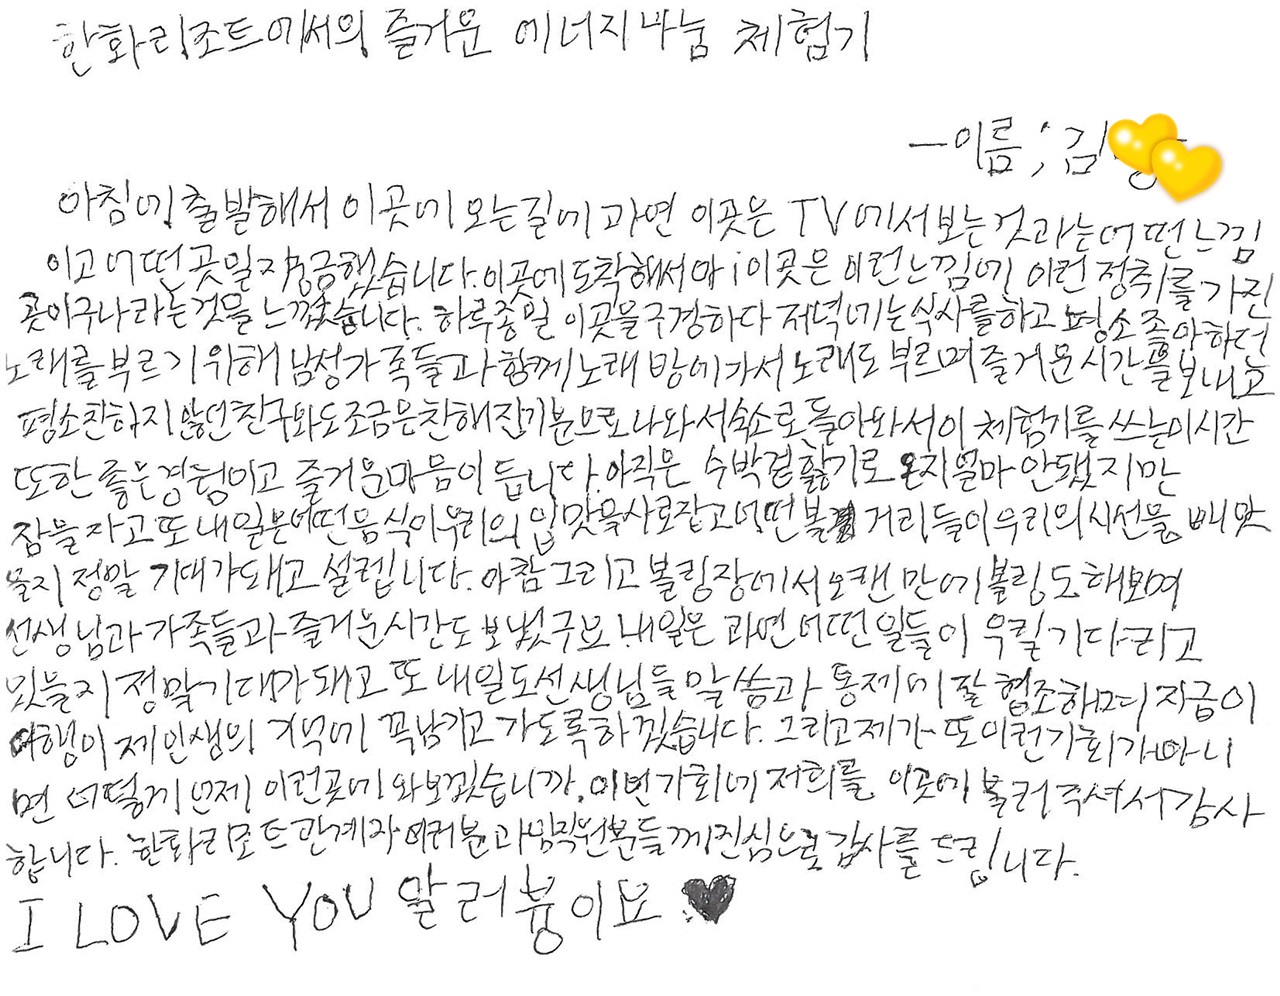 한화리조트에서의 즐거운 에너지나눔 체험기
-이름; 김
아침에 출발해서 이곳에 오는길에 과연 이곳은 TV에서보는것과는어떤느낌
이고 어떤곳일지 궁금했습니다. 이곳에도착해서야 이곳은 이런느낌에 이런 정취를 가진
곳이구나 라는것을 느꼈습니다. 하루종일 이곳을구경하다 저녁에는식사를하고 평소 좋아하던
노래를 부르기위해 남성가족들과 함께 노래방에가서 노래도 부르며 즐거운시간을보내고
평소친하지 않던친구와도조금은친해진기분으로나와서숙소로돌아와서이 체험기를 쓰는이시간
또한 좋은경험이고 즐거운마음이 듭니다. 아직은 수박겉핥기로 온지얼마 안됐지만
잠을자고또내일은어떤음식이우리의 입맛을사로잡고어떤볼거리들이우리의시선을 빼앗
을지 정말 기대가돼고 설렙니다. 아참그리고 볼링장에서오랜만에볼링도해보며
선생님과가족들과즐거운시간도보냈구요. 내일은 과연어떤일들이 우릴기다리고
있을지정말기대가돼고 또 내일도선생님들말씀과 통제에잘협조하며 지금이
여행이 제인생의 기억에 꼭남기고가도록하겠습니다. 그리고제가 또이런기회가아니
면 어떻게 언제 이런곳에와보겠습니까. 이번기회에 저희를 이곳에 불러주셔서감사
합니다. 한화리조트관계자여러분과임직원분들께진심으로감사를드립니다.
I LOVE YOU 알러븅이요 ♥